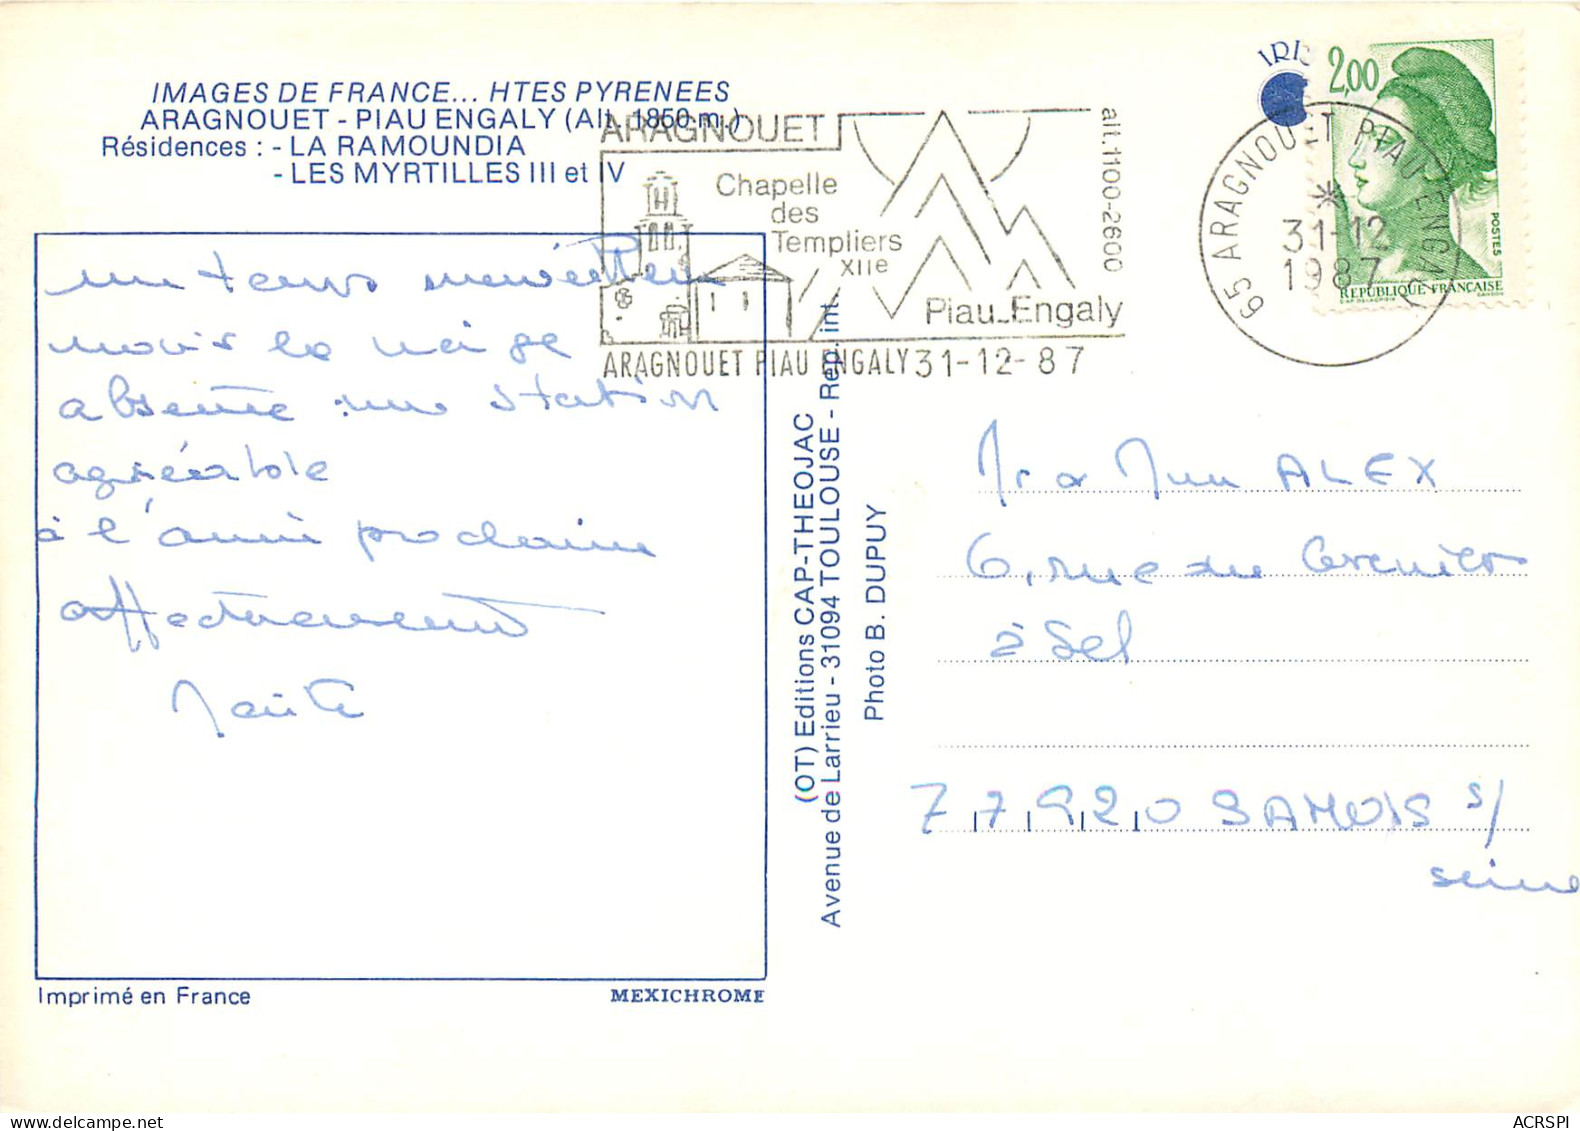 IMAGES DE FRANCE... HTES PYRENEES
ARAGNOUET - PIAU ENGALY (Alt. 1850 m.)
Résidences : - LA RAMOUNDIA
- LES MYRTILLES III et IV
ARAGNOUET
Chapelle
des
Templiers
XIIe
Piau-Engaly
alt.1100-2600
ARAGNOUET PIAU ENGALY 31-12-87
65 ARAGNOUET PIAU ENGALY
31-12
1987
2,00
POSTES
REPUBLIQUE FRANÇAISE
un temps merveilleux
mais la neige
absente une station
agréable
à l'année prochaine
affectueusement
(OT) Editions CAP-THEOJAC
Avenue de Larrieu - 31094 TOULOUSE - Rep. int.
Photo B. DUPUY
Mr & Mme ALEX
6, rue du Grenier
à Sel
77920 SAMOIS s/
seine
Imprimé en France
MEXICHROME
ACRSPI